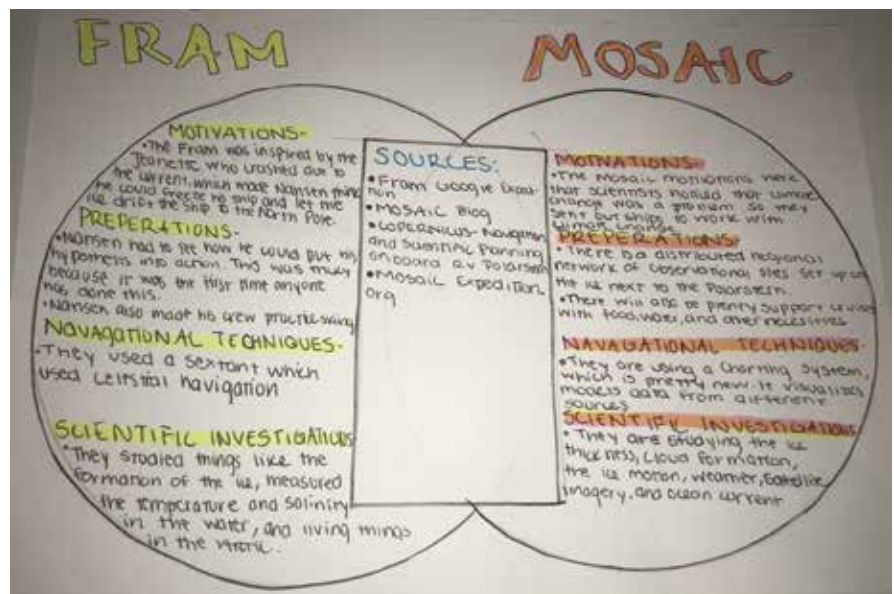 FRAM
MOTIVATIONS-
•The Fram was inspired by the
Jeanette who crashed due to
the current, which made Nansen think
he could freeze his ship and let the
ice drift the ship to the North Pole.
PREPERATIONS-
•Nansen had to see how he could put his
hypothesis into action. This was tricky
because it was the first time anyone
has done this.
•Nansen also made his crew practice
NAVAGATIONAL TECHNIQUES-
•They used a sextant which
used celestial navigation
SCIENTIFIC INVESTIGATIONS
•They studied things like the
formation of the ice, measured
the temperature and salinity
in the water, and living things
in the
SOURCES:
•Fram Google Expedi-
tion
•MOSAiC Blog
•COPERNICUS- Navigation
and Scientific Planning
onboard RV Polarstern
•Mosaic Expedition
org
MOSAIC
MOTIVATIONS-
•The Mosaic motivations were
that scientists noticed that climate
change was a problem so they
sent out ships to work with
climate change.
PREPERATIONS-
•There is a distributed regional
network of observational sites set up on
the ice next to the Polarstern.
•There will also be plenty support cruises
with food, water, and other necessities
NAVAGATIONAL TECHNIQUES-
•They are using a Charting System,
which is pretty new. It visualizes
models data from different
sources
SCIENTIFIC INVESTIGATIONS
•They are studying the ice
thickness, cloud formation,
the ice motion, weather, Satellite
imagery, and ocean current